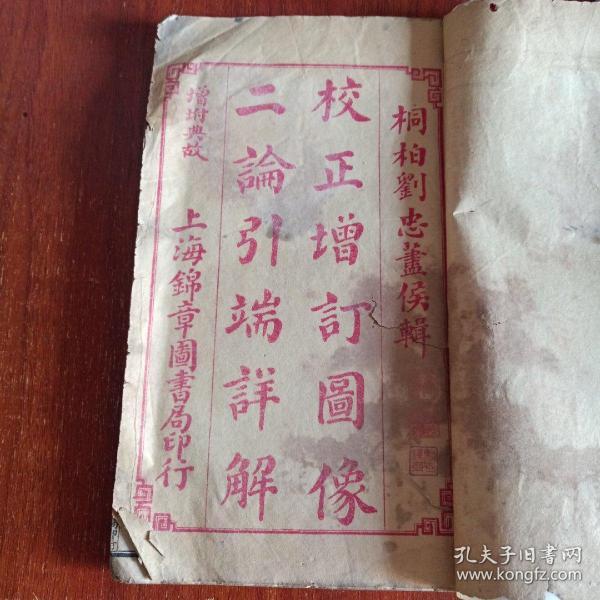 桐柏劉忠藎侯輯
校正增訂圖像
二論引端詳解
增坿典故
上海錦章圖書局印行
孔夫子旧书网
www.kongfz.com